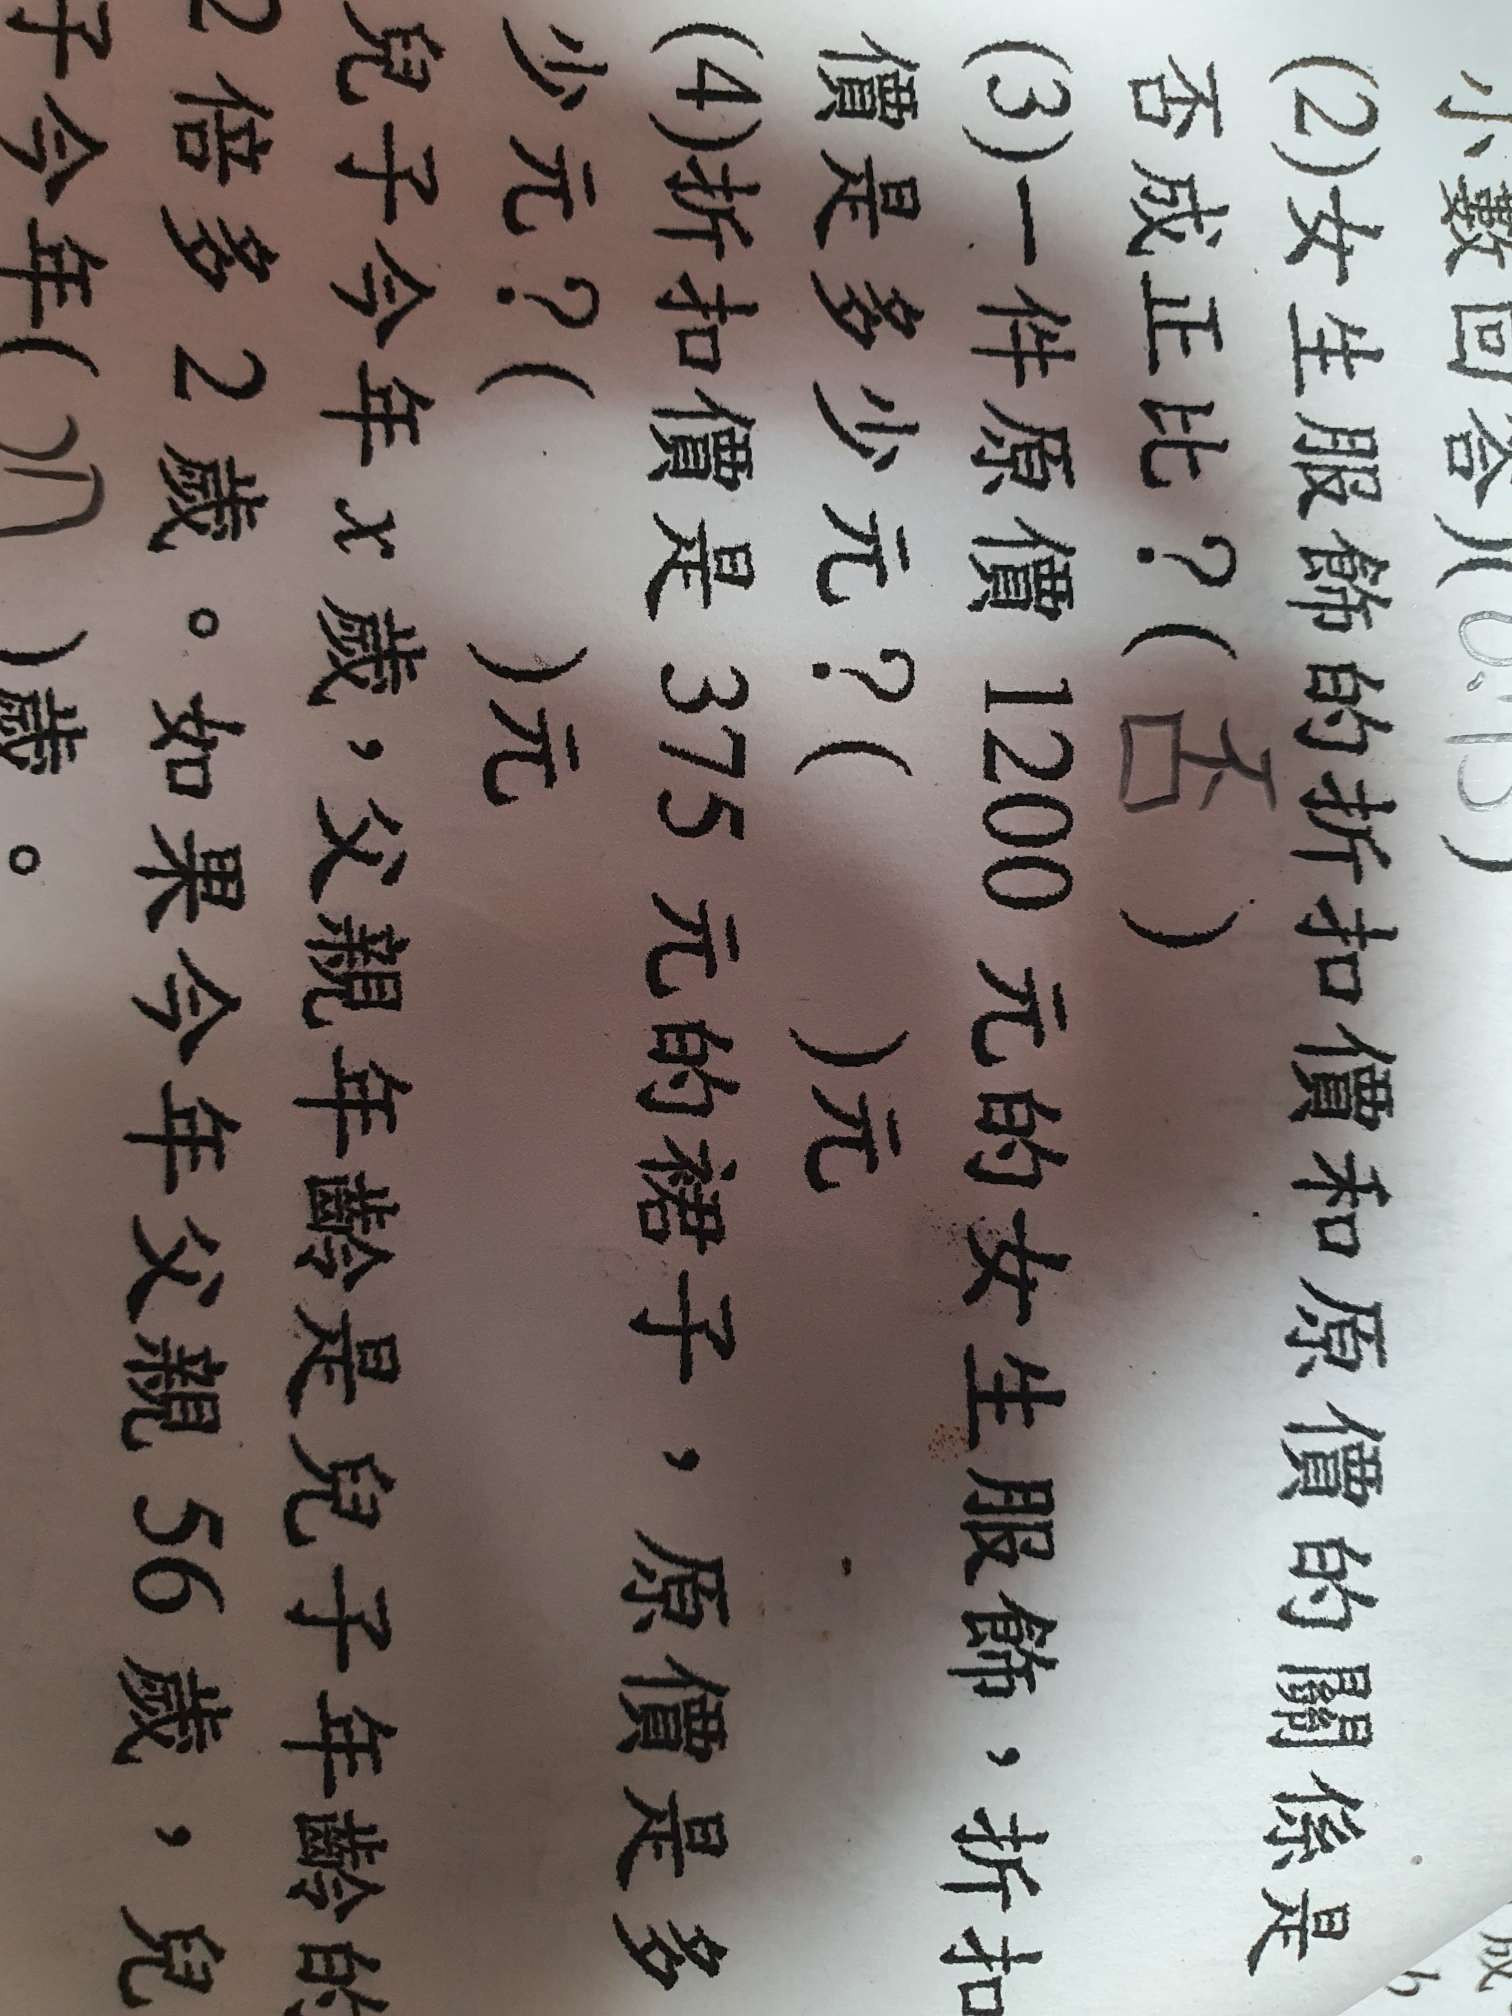 小數回答)(0.75)
(2)女生服飾的折扣價和原價的關係是
否成正比?( 否 )
(3)一件原價 1200 元的女生服飾,折扣
價是多少元?( )元
(4)折扣價是 375 元的裙子,原價是多
少元?( )元
兒子今年 x 歲,父親年齡是兒子年齡的
2 倍多 2 歲。如果今年父親 56 歲,兒
子今年( )歲。